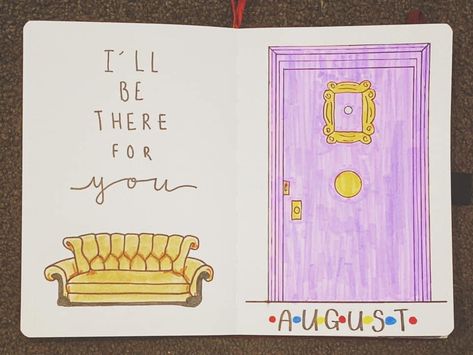 I'LL
BE
THERE
FOR
you
•A•U•G•U•S•T•